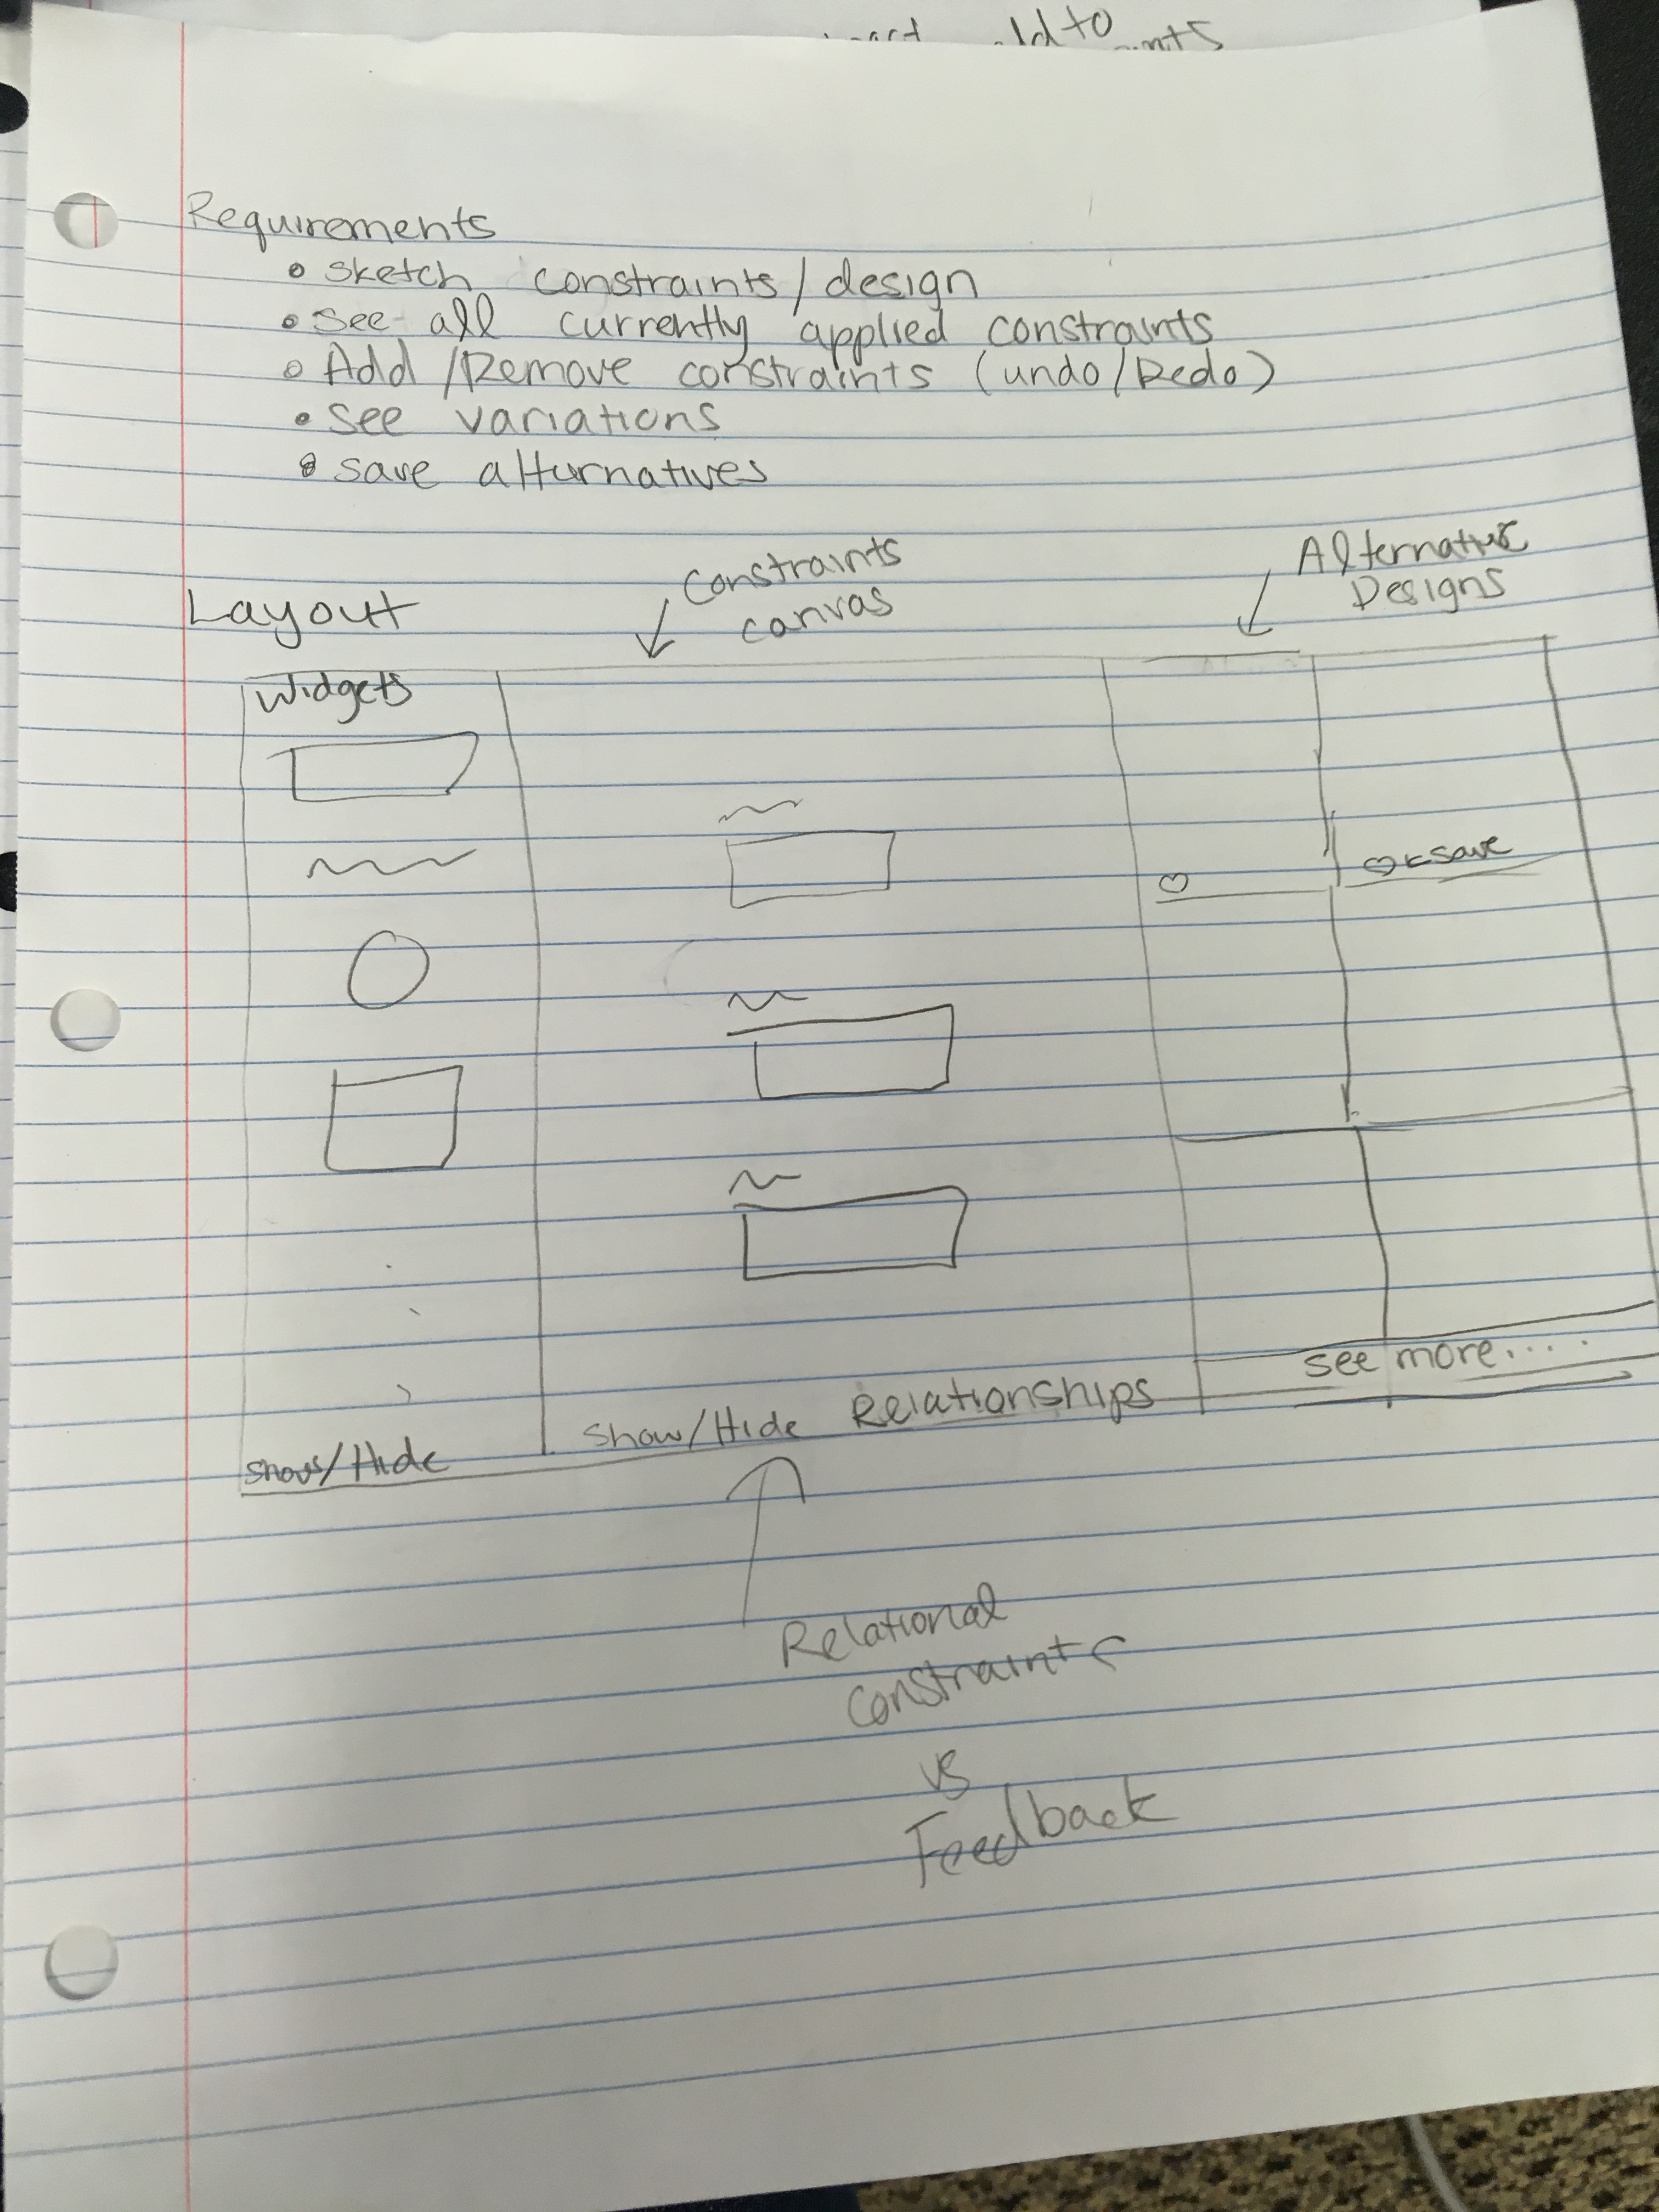 add to
Requirements
• sketch constraints/design
• see all currently applied constraints
• Add/Remove constraints (undo/Redo)
• see variations
• save alturnatives
Layout
Constraints
canvas
Alternative
Designs
Widgets
♡ ← save
♡
see more....
Show/Hide Relationships
Show/Hide
Relational
Constraints
vs
Feedback